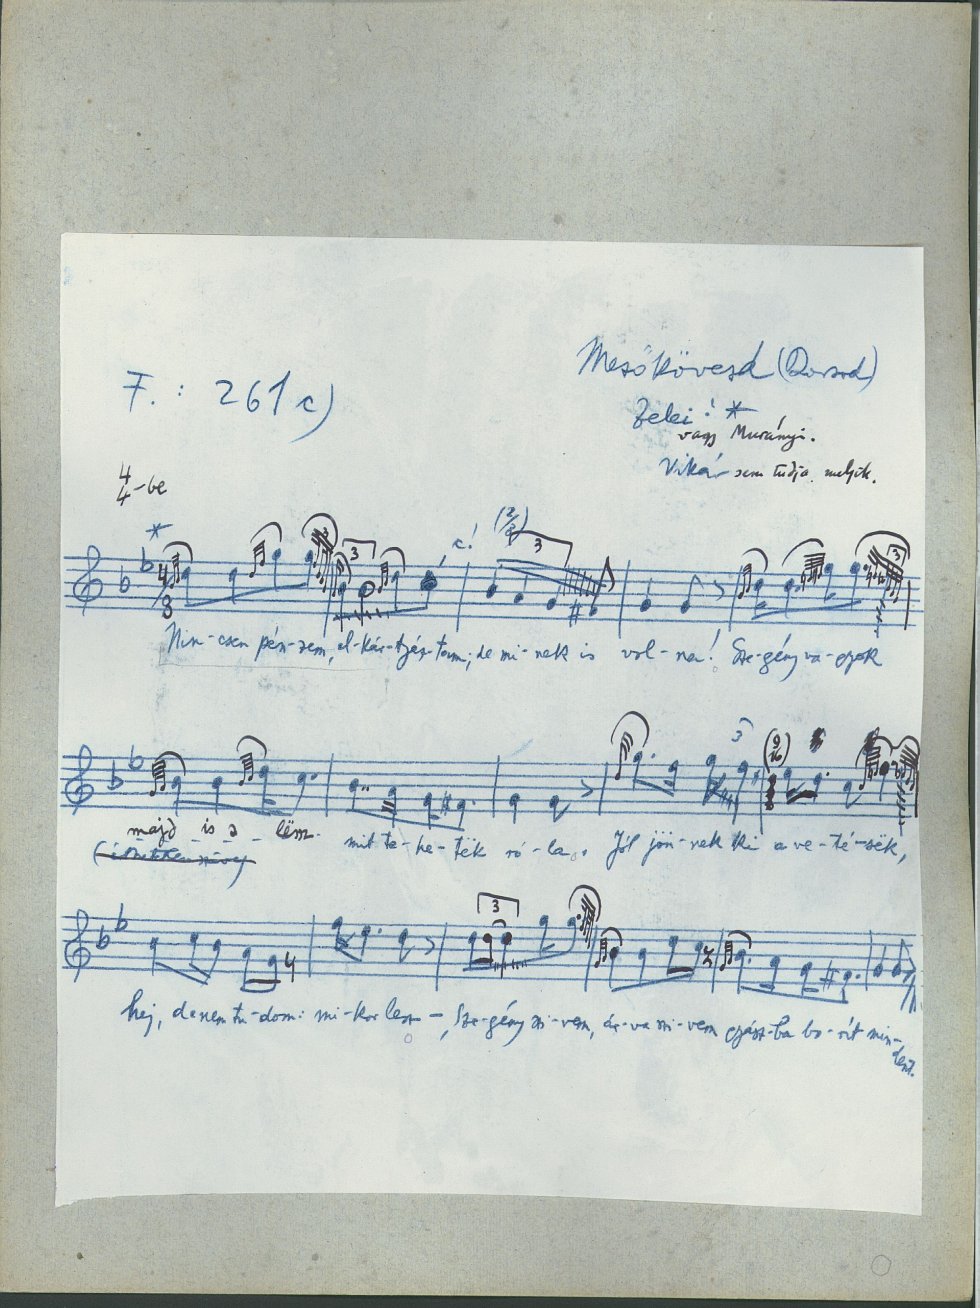 F.: 261c)
Mezőkövesd (Borsod)
Zelei! *
vagy Murányi.
Vikár sem tudja melyik.
4/4-be
*
(2/2)
3 3 3
4/8
Nin-csen pén-zem, el-kár-tyáz-tam, de mi-nek is vol-na! Sze-gény va-gyok
3
(9/16)
majd is a-lesz mit te-he-tek ró-la. Jól jön-nek ki a ve-té-sek,
3
hej, de nem tu-dom: mi-kor lesz -, Sze-gény szi-vem, ár-va szi-vem gyász-ba bo-rít min-
dent.